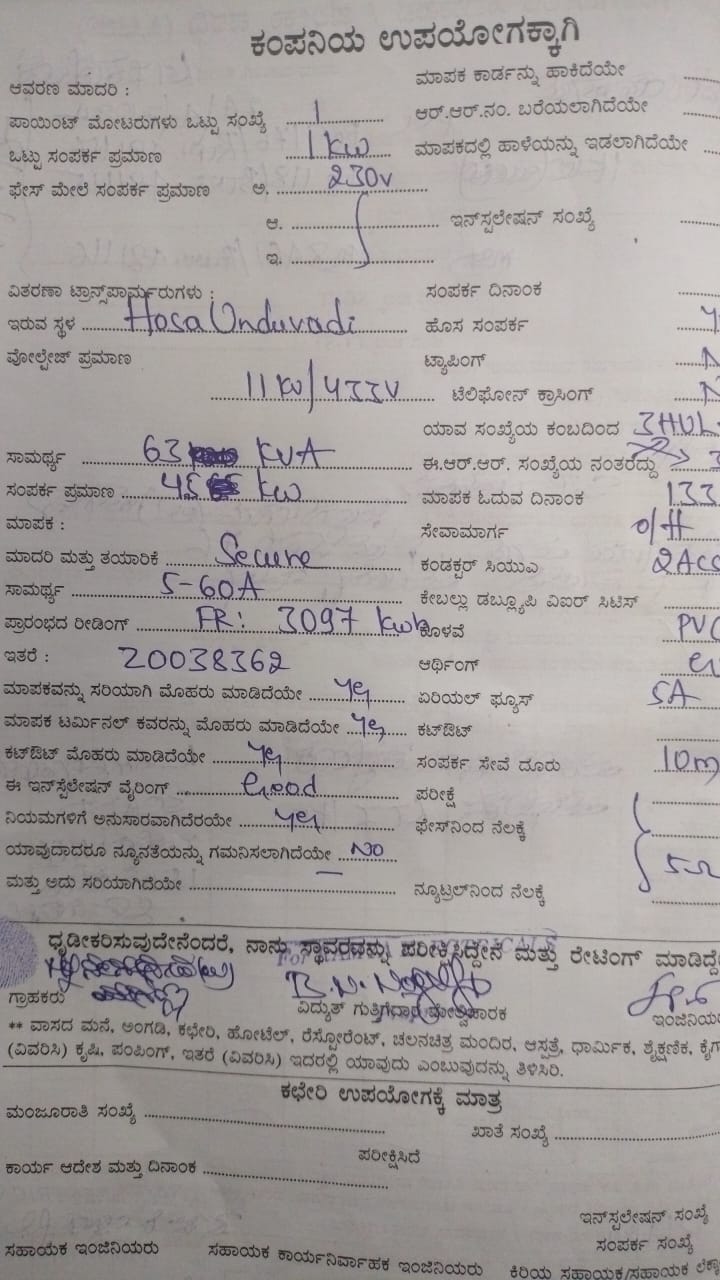 ಕಂಪನಿಯ ಉಪಯೋಗಕ್ಕಾಗಿ
ಆವರಣ ಮಾದರಿ :
ಮಾಪಕ ಕಾರ್ಡನ್ನು ಹಾಕಿದೆಯೇ
ಪಾಯಿಂಟ್ ಮೋಟರುಗಳು ಒಟ್ಟು ಸಂಖ್ಯೆ 1
ಆರ್.ಆರ್.ನಂ. ಬರೆಯಲಾಗಿದೆಯೇ
ಒಟ್ಟು ಸಂಪರ್ಕ ಪ್ರಮಾಣ 1 KW
ಮಾಪಕದಲ್ಲಿ ಹಾಳೆಯನ್ನು ಇಡಲಾಗಿದೆಯೇ
ಫೇಸ್ ಮೇಲೆ ಸಂಪರ್ಕ ಪ್ರಮಾಣ ಅ. 230V
ಆ.
ಇನ್‌ಸ್ಟಲೇಷನ್ ಸಂಖ್ಯೆ
ಇ.
ವಿತರಣಾ ಟ್ರಾನ್ಸ್‌ಫಾರ್ಮರುಗಳು :
ಸಂಪರ್ಕ ದಿನಾಂಕ
ಇರುವ ಸ್ಥಳ Hosa Unduvadi
ಹೊಸ ಸಂಪರ್ಕ
ವೋಲ್ಟೇಜ್ ಪ್ರಮಾಣ 11KV/433V
ಟ್ಯಾಪಿಂಗ್
ಟೆಲಿಫೋನ್ ಕ್ರಾಸಿಂಗ್
ಯಾವ ಸಂಖ್ಯೆಯ ಕಂಬದಿಂದ
ಸಾಮರ್ಥ್ಯ 63 KVA
ಈ.ಆರ್.ಆರ್. ಸಂಖ್ಯೆಯ ನಂತರದ್ದು
ಸಂಪರ್ಕ ಪ್ರಮಾಣ 45 KW
ಮಾಪಕ ಓದುವ ದಿನಾಂಕ 133
ಮಾಪಕ :
ಸೇವಾಮಾರ್ಗ O/H
ಮಾದರಿ ಮತ್ತು ತಯಾರಿಕೆ Secure
ಕಂಡಕ್ಟರ್ ಸಿಯುಎ
ಸಾಮರ್ಥ್ಯ 5-60A
ಕೇಬಲ್ಲು ಡಬ್ಲ್ಯೂಪಿ ವಿಐರ್ ಸಿಟಿಸ್
ಪ್ರಾರಂಭದ ರೀಡಿಂಗ್ FR: 3097 Kwh
ಕೊಳವೆ PVC
ಇತರೆ : 20038362
ಆರ್ಥಿಂಗ್
ಮಾಪಕವನ್ನು ಸರಿಯಾಗಿ ಮೊಹರು ಮಾಡಿದೆಯೇ Yes
ಏರಿಯಲ್ ಫ್ಯೂಸ್ 5A
ಮಾಪಕ ಟರ್ಮಿನಲ್ ಕವರನ್ನು ಮೊಹರು ಮಾಡಿದೆಯೇ Yes
ಕಟ್‌ಔಟ್
ಕಟ್‌ಔಟ್ ಮೊಹರು ಮಾಡಿದೆಯೇ Yes
ಸಂಪರ್ಕ ಸೇವೆ ದೂರು 10m
ಈ ಇನ್‌ಸ್ಟಲೇಷನ್ ವೈರಿಂಗ್ Good
ಪರೀಕ್ಷೆ
ನಿಯಮಗಳಿಗೆ ಅನುಸಾರವಾಗಿದೆರಯೇ Yes
ಫೇಸ್‌ನಿಂದ ನೆಲಕ್ಕೆ
ಯಾವುದಾದರೂ ನ್ಯೂನತೆಯನ್ನು ಗಮನಿಸಲಾಗಿದೆಯೇ NO
5Ω
ಮತ್ತು ಅದು ಸರಿಯಾಗಿದೆಯೇ –
ನ್ಯೂಟ್ರಲ್‌ನಿಂದ ನೆಲಕ್ಕೆ
ಧೃಡೀಕರಿಸುವುದೇನೆಂದರೆ, ನಾನು ಸ್ಥಾವರವನ್ನು ಪರೀಕ್ಷಿಸಿದ್ದೇನೆ ಮತ್ತು ರೇಟಿಂಗ್ ಮಾಡಿದ್ದೇ
ಗ್ರಾಹಕರು
ವಿದ್ಯುತ್ ಗುತ್ತಿಗೆದಾರ ಮೇಲ್ವಿಚಾರಕ
ಇಂಜಿನಿಯರ
** ವಾಸದ ಮನೆ, ಅಂಗಡಿ, ಕಛೇರಿ, ಹೋಟೆಲ್, ರೆಸ್ಟೋರೆಂಟ್, ಚಲನಚಿತ್ರ ಮಂದಿರ, ಆಸ್ಪತ್ರೆ, ಧಾರ್ಮಿಕ, ಶೈಕ್ಷಣಿಕ, ಕೈಗ
(ವಿವರಿಸಿ) ಕೃಷಿ, ಪಂಪಿಂಗ್, ಇತರೆ (ವಿವರಿಸಿ) ಇದರಲ್ಲಿ ಯಾವುದು ಎಂಬುವುದನ್ನು ತಿಳಿಸಿರಿ.
ಕಛೇರಿ ಉಪಯೋಗಕ್ಕೆ ಮಾತ್ರ
ಮಂಜೂರಾತಿ ಸಂಖ್ಯೆ
ಖಾತೆ ಸಂಖ್ಯೆ
ಪರೀಕ್ಷಿಸಿದೆ
ಕಾರ್ಯ ಆದೇಶ ಮತ್ತು ದಿನಾಂಕ
ಇನ್‌ಸ್ಟಲೇಷನ್ ಸಂಖ್ಯೆ
ಸಂಪರ್ಕ ಸಂಖ್ಯೆ
ಸಹಾಯಕ ಇಂಜಿನಿಯರು
ಸಹಾಯಕ ಕಾರ್ಯನಿರ್ವಾಹಕ ಇಂಜಿನಿಯರು
ಕಿರಿಯ ಸಹಾಯಕ/ಸಹಾಯಕ ಲೆಕ್ಕ